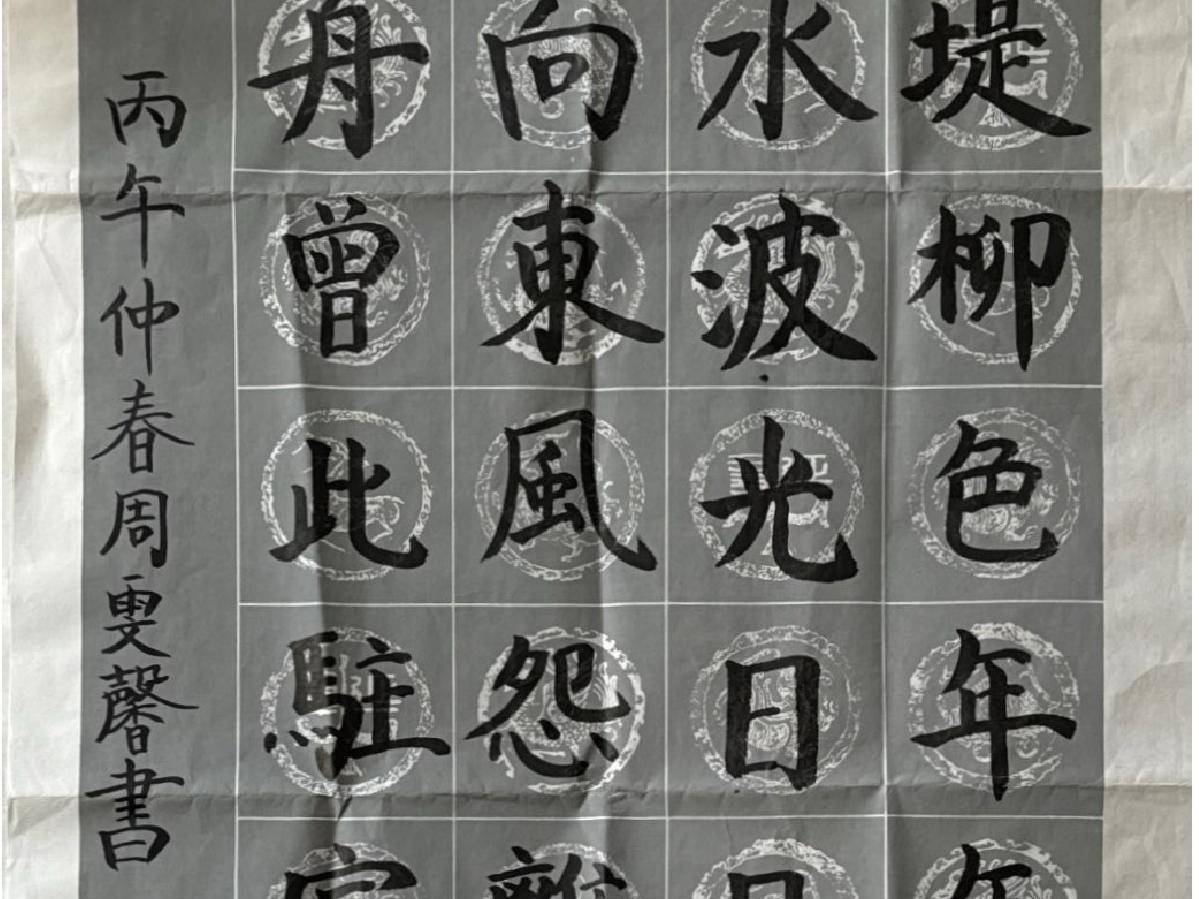 堤柳色年年
水波光日日
向東風怨離
舟曾此駐
丙午仲春周雯馨書